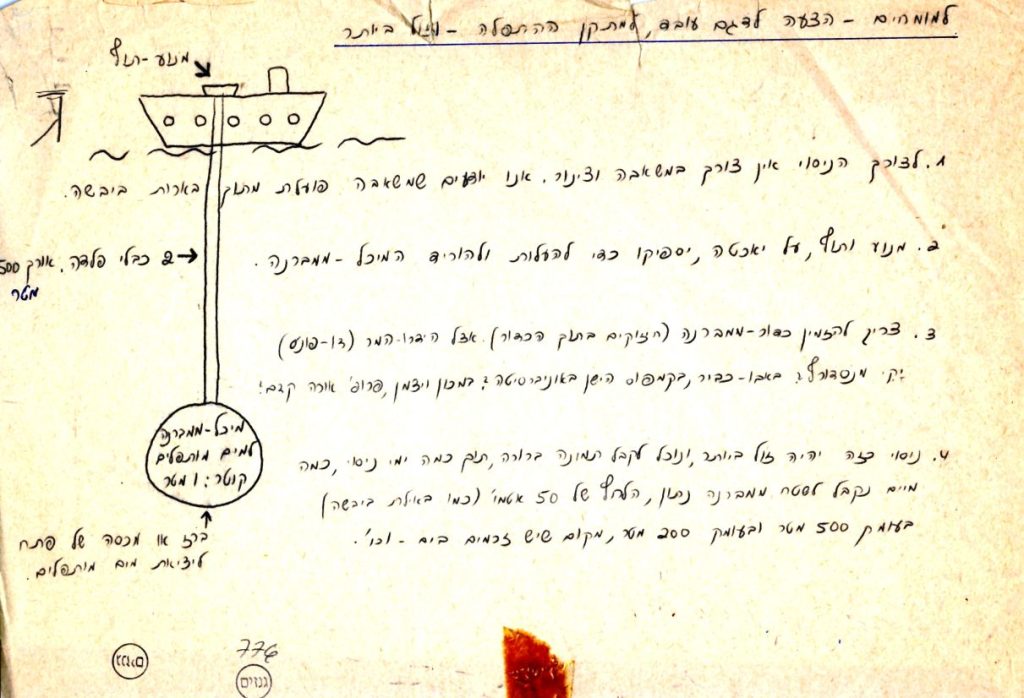 למומחים - הצעה לדגם עובד, למתקן ההתפלה - וזול ביותר
מנוע-תוף
1. לצורך הניסוי אין צורך במשאבה וצינור. אנו יודעים שמשאבה פועלת מתוך בארות ביבשה.
2. מנוע ותוף, על יאכטה, יספיקו כדי להעלות ולהוריד המיכל-ממברנה.
2 כבלי פלדה. אורך 500
מטר
3. צריך להזמין כדור-ממברנה (חזוקים בתוך הכדור) אצל (דו-פונט)
באבו-כביר, בקמפוס הישן באוניברסיטה? במכון ויצמן, פרופ' אורה קדם!
מיכל-ממברנה
למים מותפלים
קוטר: 1 מטר
4. ניסוי כזה יהיה זול ביותר, ונוכל לקבל תמונה ברורה, תוך כמה ימי ניסוי, כמה
מיים נקבל לשטח ממברנה נתון, הלחץ של 50 אטמ' (כמו באילת ביבשה)
בעומק 500 מטר ובעומק 200 מטר, מקום שיש זרמים בים - וכו'.
ברז או מכסה של פתח
ליציאת מים מותפלים.
776
גנזים